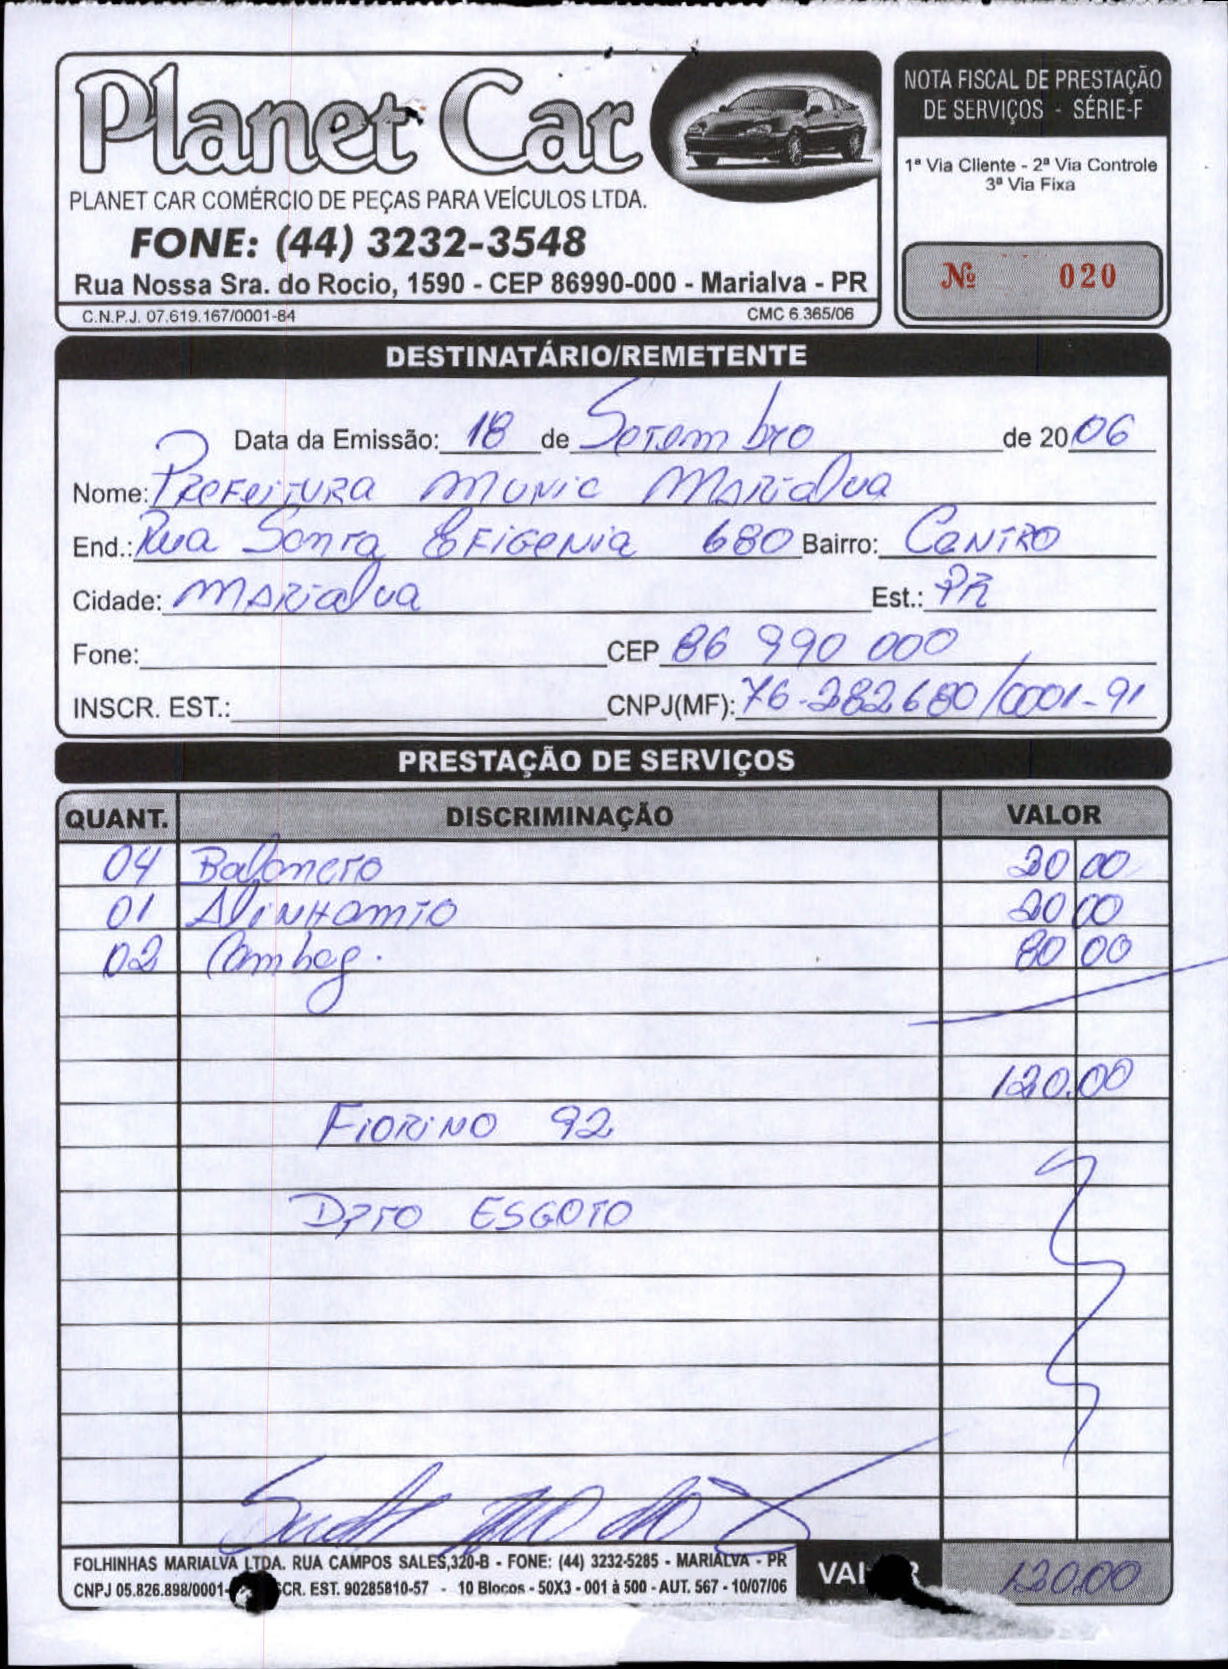 Planet Car
PLANET CAR COMÉRCIO DE PEÇAS PARA VEÍCULOS LTDA.
FONE: (44) 3232-3548
Rua Nossa Sra. do Rocio, 1590 - CEP 86990-000 - Marialva - PR
C.N.P.J. 07.619.167/0001-84 CMC 6.365/06
NOTA FISCAL DE PRESTAÇÃO
DE SERVIÇOS - SÉRIE-F
1ª Via Cliente - 2ª Via Controle
3ª Via Fixa
Nº 020
DESTINATÁRIO/REMETENTE
Data da Emissão: 18 de Setembro de 2006
Nome: Prefeitura Munic Marialva
End.: Rua Santa Efigenia 680 Bairro: Centro
Cidade: Marialva Est.: PR
Fone: CEP 86 990 000
INSCR. EST.: CNPJ(MF): 76.282680/0001-91
PRESTAÇÃO DE SERVIÇOS
QUANT. DISCRIMINAÇÃO VALOR
04 Balamcto 20 00
01 Alinhamto 20 00
02 Cambag. 80 00
120.00
Fiorino 92
Dpto ESGOTO
FOLHINHAS MARIALVA LTDA. RUA CAMPOS SALES,320-B - FONE: (44) 3232-5285 - MARIALVA - PR
CNPJ 05.826.898/0001- SCR. EST. 90285810-57 - 10 Blocos - 50X3 - 001 à 500 - AUT. 567 - 10/07/06
120.00